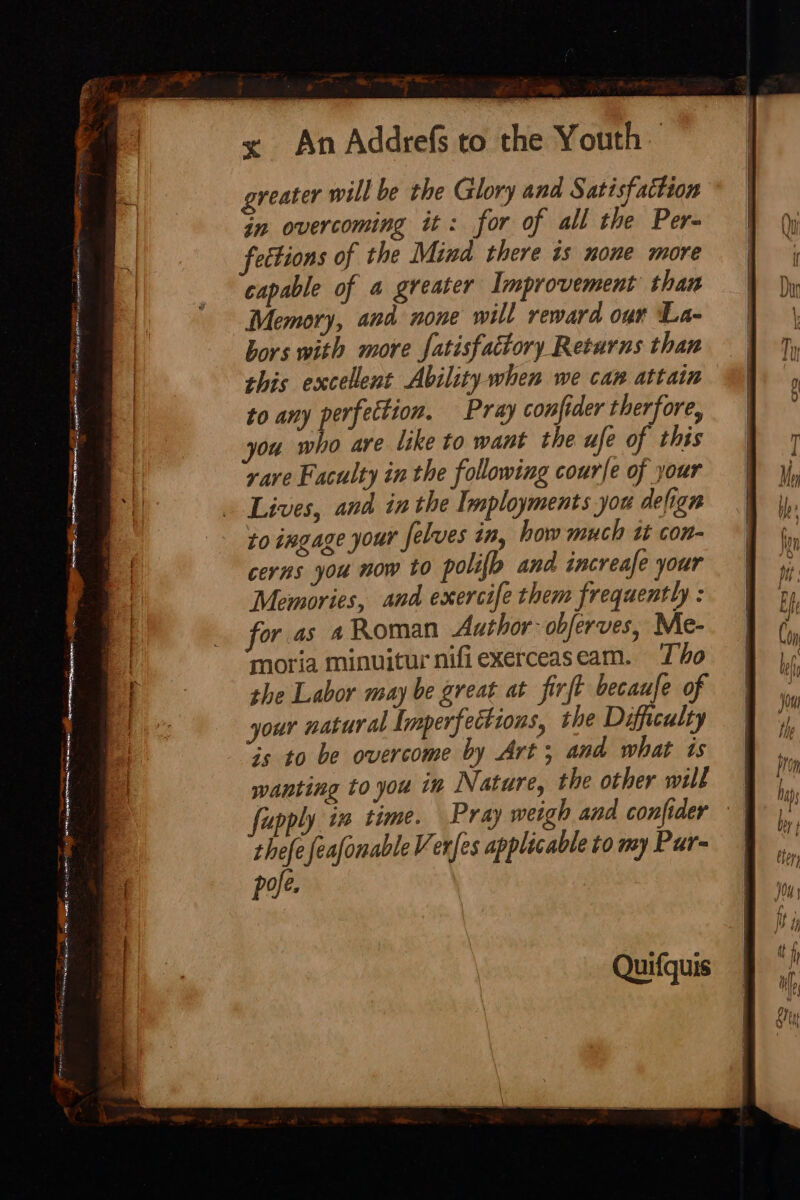 x An Addreſs to the Youth
greater will be the Glory and Satisfaction
in overcoming it: for of all the Per-
fections of the Mind there is none more
capable of a greater Improvement than
Memory, and none will reward our La-
bors with more ſatisfactory Returns than
this excellent Ability when we can attain
to any perfection. Pray conſider therfore,
you who are like to want the uſe of this
rare Faculty in the following courſe of your
Lives, and in the Imployments you deſign
to ingage your ſelves in, how much it con-
cerns you now to poliſh and increaſe your
Memories, and exerciſe them frequently :
for as a Roman Author obſerves, Me-
moria minuitur niſi exerceas eam. Tho
the Labor may be great at firſt becauſe of
your natural Imperfections, the Difficulty
is to be overcome by Art; and what is
wanting to you in Nature, the other will
ſupply in time. Pray weigh and conſider
theſe ſeaſonable Verſes applicable to my Pur-
poſe.
Quiſquis